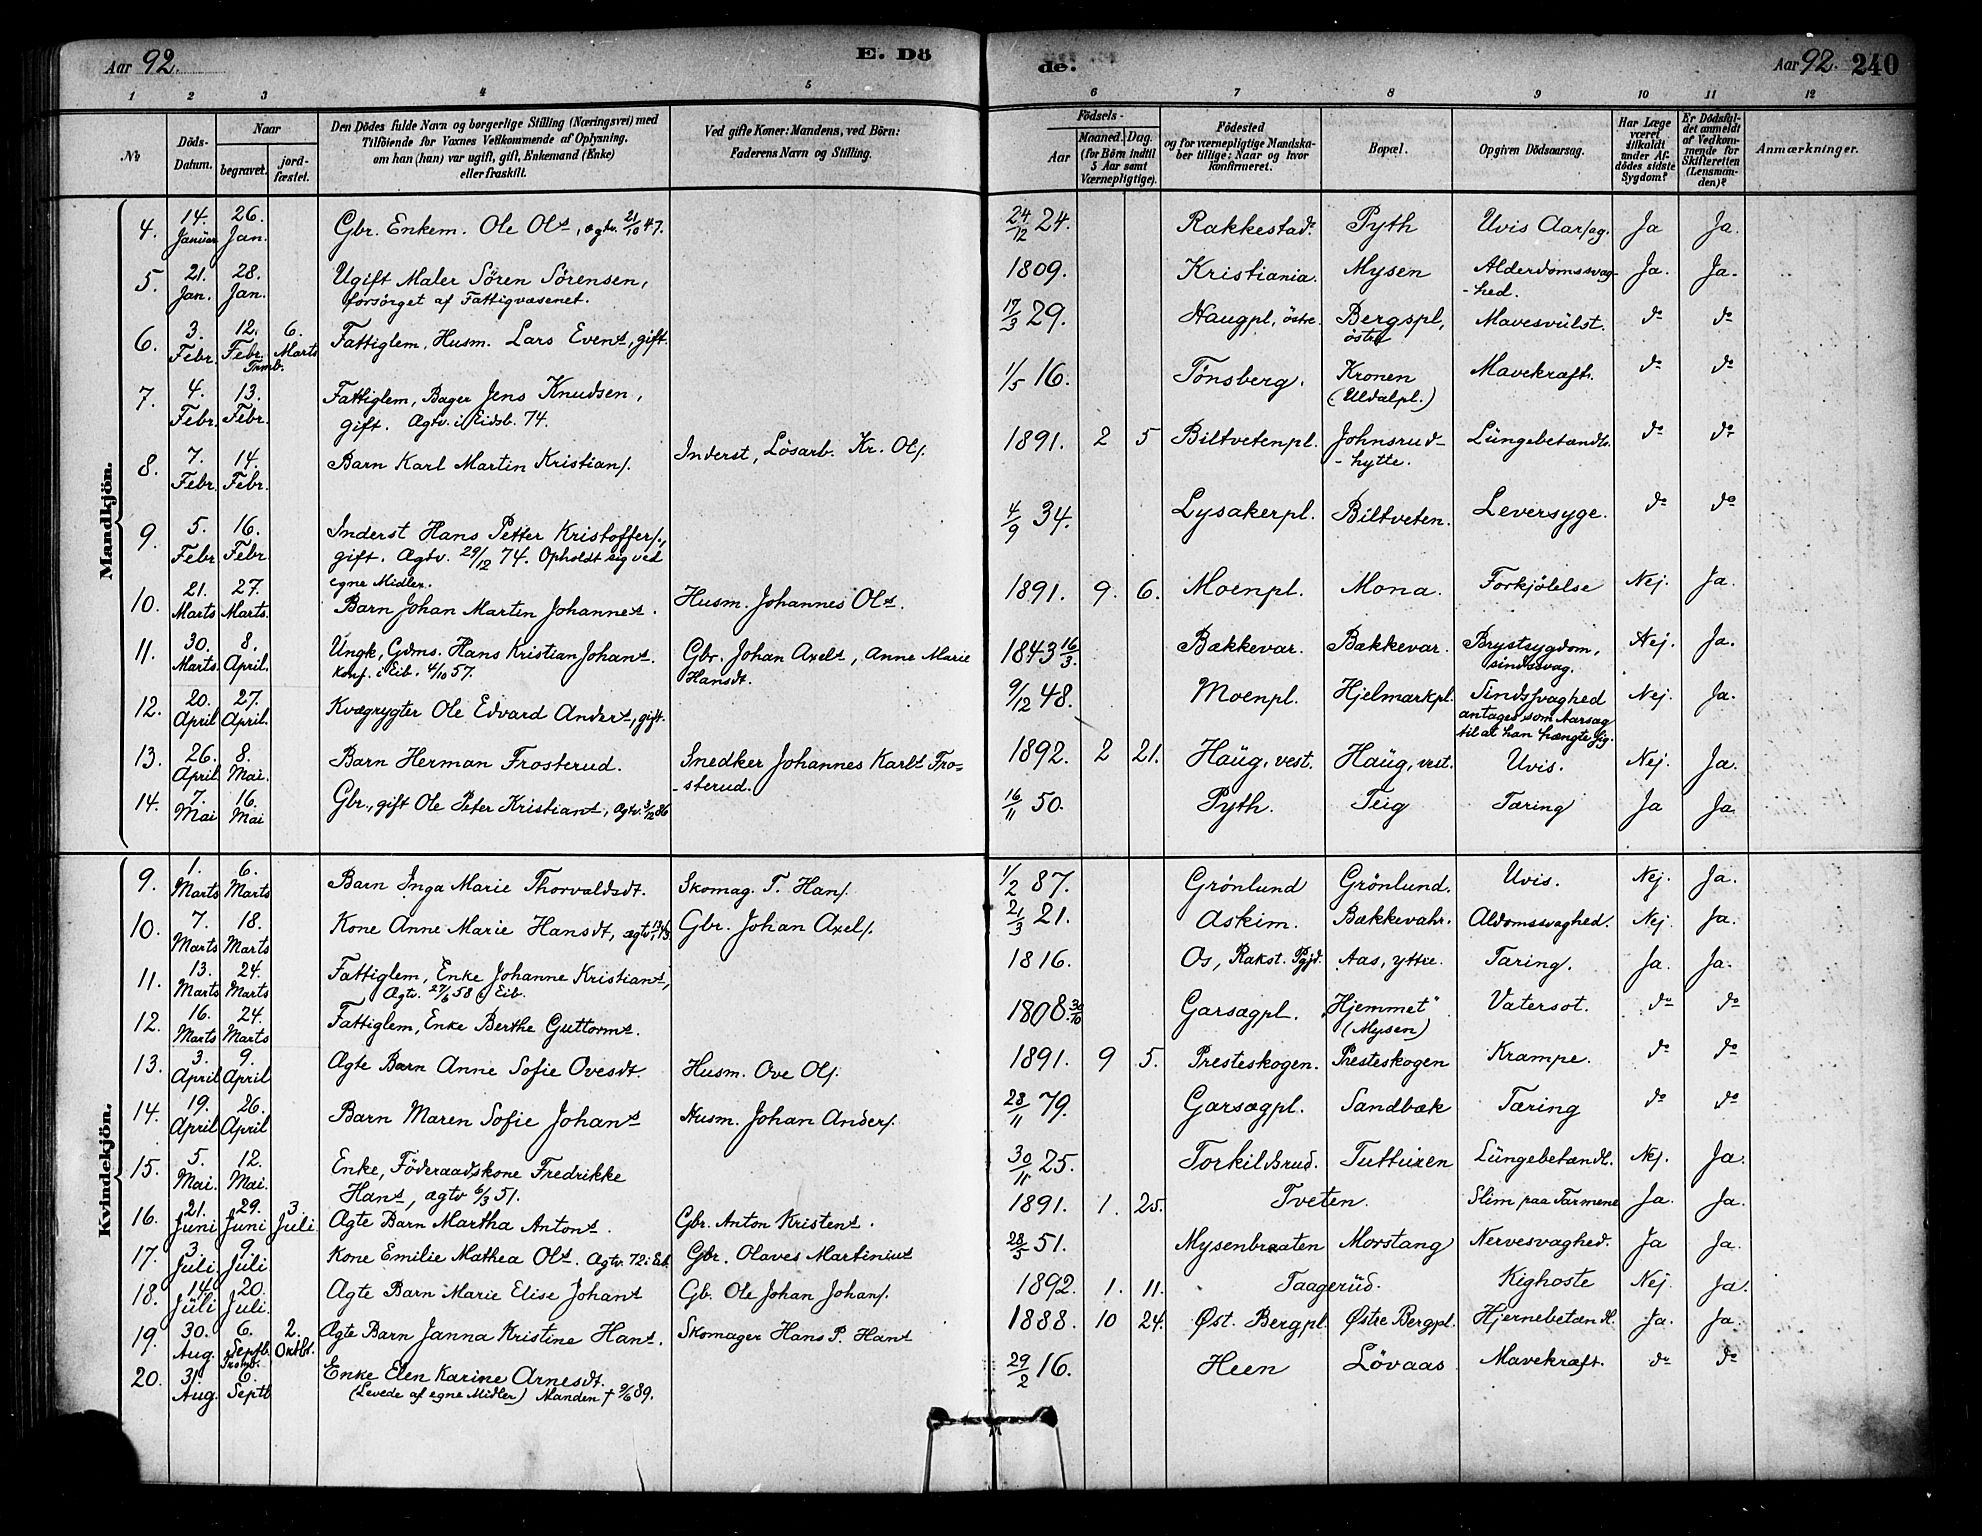 Aar 92.
E. Dö
de.
Aar 92. 240
1 2 3 4 5 6 7 8 9 10 11 12
No
Döds-Datum.
Naar
begravet.
jord-fæstet.
Den Dödes fulde Navn og borgerlige Stilling (Næringsvei) med
Tilföiende for Voxnes Vedkommende af Oplysning,
om han (hun) var ugift, gift, Enkemand (Enke)
eller fraskilt.
Ved gifte Koner: Mandens, ved Börn:
Faderens Navn og Stilling.
Födsels-
Aar
Maaned. Dag.
(for Börn indtil
5 Aar samt
Værnepligtige).
Födested
og for værnepligtige Mandska-
ber tillige: Naar og hvor
konfirmeret.
Bopæl.
Opgiven Dödsaarsag.
Har Læge
været
tilkaldt
under Af-
dödes sidste
Sygdom?
Er Dödsfal-
det anmeldt
af Vedkom-
mende for
Skifteretten
(Lensman-
den)?
Anmærkninger.
Mandkjön.
4. 14. Januar 26. Jan. Gbr. Enkem. Ole Ols, ægtv. 21/10 47. 24/12 24. Rakkestad. Pyth Uvis Aarsag. Ja Ja.
5. 21. Jan. 28. Jan. Ugift Maler Sören Sörensen, 1809. Kristiania. Mysen Alderdomssvag- Ja. Ja.
forsörget af Fattigvæsenet. -hed.
6. 3. Febr. 12. Febr. 6. Marts Fattiglem, Husm. Lars Evens, gift. 17/3 29. Haugpl, östre. Bergspl, östre Mavesvülst. do do
7. 4. Febr. 13. Febr. Fattiglem, Bager Jens Knudsen, 1/5 16. Tönsberg. Kronen Mavekræft. do do
gift. Ægtv. i Eidsb. 74. (Uldalpl.)
8. 7. Febr. 14. Febr. Barn Karl Martin Kristians. Inderst, Lösarb. Kr. Ols. 1891. 2 5 Biltvetenpl. Johnsrud- Lüngebetændls. do do
-hytte.
9. 5. Febr 16. Febr. Inderst Hans Petter Kristoffers., 4/9 34. Lysakerpl. Biltveten. Leversyge. do do
gift. Ægtv. 29/12 74. Opholdt sig ved
egne Midler.
10. 21. Marts 27. Marts. Barn Johan Martin Johannes. Husm. Johannes Ols. 1891. 9. 6. Moenpl. Mona. Forkjölelse Nej. Ja.
11. 30. Marts 8. April. Ungk, Gdms. Hans Kristian Johans. Gbr. Johan Axels, Anne Marie 1843 16/3. Bækkevar. Bækkevar. Brystsygdom, Nej. Ja.
Konf. i Eib. 4/10 57. Hansdt. sindssvag.
12. 20. April 27. April. Kvægrygter Ole Edvard Anders, gift. 9/12 48. Moenpl. Hjelmarkpl. Sindssvaghed Nej. Ja.
antages som Aarsag
til at han hængte sig.
13. 26. April 8. Mai. Barn Herman Frosterud. Snedker Johannes Karls Fro- 1892. 2 21. Haüg, vest. Haüg, vest. Uvis. Nej. Ja.
-sterud.
14. 7. Mai 16. Mai Gbr., gift Ole Peter Kristians, ægtv. 3/12 86 16/11 50. Pyth. Teig Tæring Ja Ja.
Kvindekjön.
9. 1. Marts 6. Marts Barn Inga Marie Thorvaldsdt. Skomag. T. Hans. 1/2 87. Grönlund Grönlund. Uvis. Nej. Ja.
10. 7. Marts 18. Marts Kone Anne Marie Hansdt, ægtv. Gbr. Johan Axels. 21/3 21. Askim. Bækkevahr. Aldomssvaghed. Nej. Ja.
11. 13. Marts 24. Marts Fattiglem, Enke Johanne Kristians, 1816. Os, Rakst. Pgjd. Aas, yttre. Tæring. Ja. Ja.
Ægtv. 27/6 58 i Eib.
12. 16. Marts 24. Marts Fattiglem, Enke Berthe Guttorms. 1808 30/10 Garsægpl. Hjemmet" Vatersot. do do
(Mysen)
13. 3. April 9. April Ægte Barn Anne Sofie Ovesdt. Husm. Ove Ols. 1891. 9 5. Presteskogen. Presteskogen Krampe. do do
14. 19. April 26. April Barn Maren Sofie Johans Husm. Johan Anders. 28/11 79. Garsægpl. Sandbæk Tæring do do
15. 5. Mai. 12. Mai. Enke, Föderaadskone Fredrikke 30/11 25. Torkildsrud. Tutturen Lüngebetændl. Nej. Ja.
Hans, ægtv 6/3 51.
16. 21. Juni 29. Juni 3. Juli. Ægte Barn Martha Antons. Gbr. Anton Kristens. 1891. 1. 25. Tveten. Slim paa Tarmene Ja. Ja.
17. 3. Juli 9. Juli Kone Emilie Mathea Ols. Ægtv. 72 i Eib. Gbr. Olaves Martinius 28/5 51. Mysenbraaten Morstang Nervesvaghed. Ja Ja.
18. 14. Juli 20. Juli. Ægte Barn Marie Elise Johans Gb. Ole Johan Johans. 1892. 1. 11. Taagerüd. Kighoste Nej. Ja.
19. 30. Aug. 6. Septb. 2. Oktbr. Ægte Barn Janna Kristine Hans. Skomager Hans P. Hans 1888. 10 24. Øst. Bergpl. Østre Bergpl. Hjernebetændl. Ja. Ja.
20. 31. Aug. 6. Septb Enke Elen Karine Arnesdt. 29/2 16. Heen Lövaas Mavekræft. do do
(Levede af egne Midler) Manden † 9/6 89.